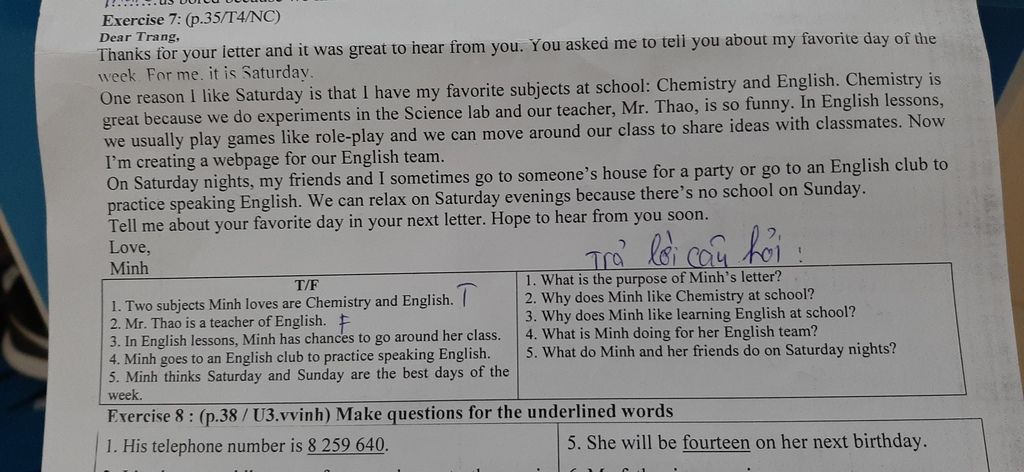 us bored because
Exercise 7: (p.35/T4/NC)
Dear Trang,
Thanks for your letter and it was great to hear from you. You asked me to tell you about my favorite day of the
week. For me, it is Saturday.
One reason I like Saturday is that I have my favorite subjects at school: Chemistry and English. Chemistry is
great because we do experiments in the Science lab and our teacher, Mr. Thao, is so funny. In English lessons,
we usually play games like role-play and we can move around our class to share ideas with classmates. Now
I'm creating a webpage for our English team.
On Saturday nights, my friends and I sometimes go to someone's house for a party or go to an English club to
practice speaking English. We can relax on Saturday evenings because there's no school on Sunday.
Tell me about your favorite day in your next letter. Hope to hear from you soon.
Love,
Minh
Trả lời câu hỏi :
T/F
1. Two subjects Minh loves are Chemistry and English. T
2. Mr. Thao is a teacher of English. F
3. In English lessons, Minh has chances to go around her class.
4. Minh goes to an English club to practice speaking English.
5. Minh thinks Saturday and Sunday are the best days of the
week.
1. What is the purpose of Minh's letter?
2. Why does Minh like Chemistry at school?
3. Why does Minh like learning English at school?
4. What is Minh doing for her English team?
5. What do Minh and her friends do on Saturday nights?
Exercise 8 : (p.38 / U3.vvinh) Make questions for the underlined words
1. His telephone number is 8 259 640.
5. She will be fourteen on her next birthday.